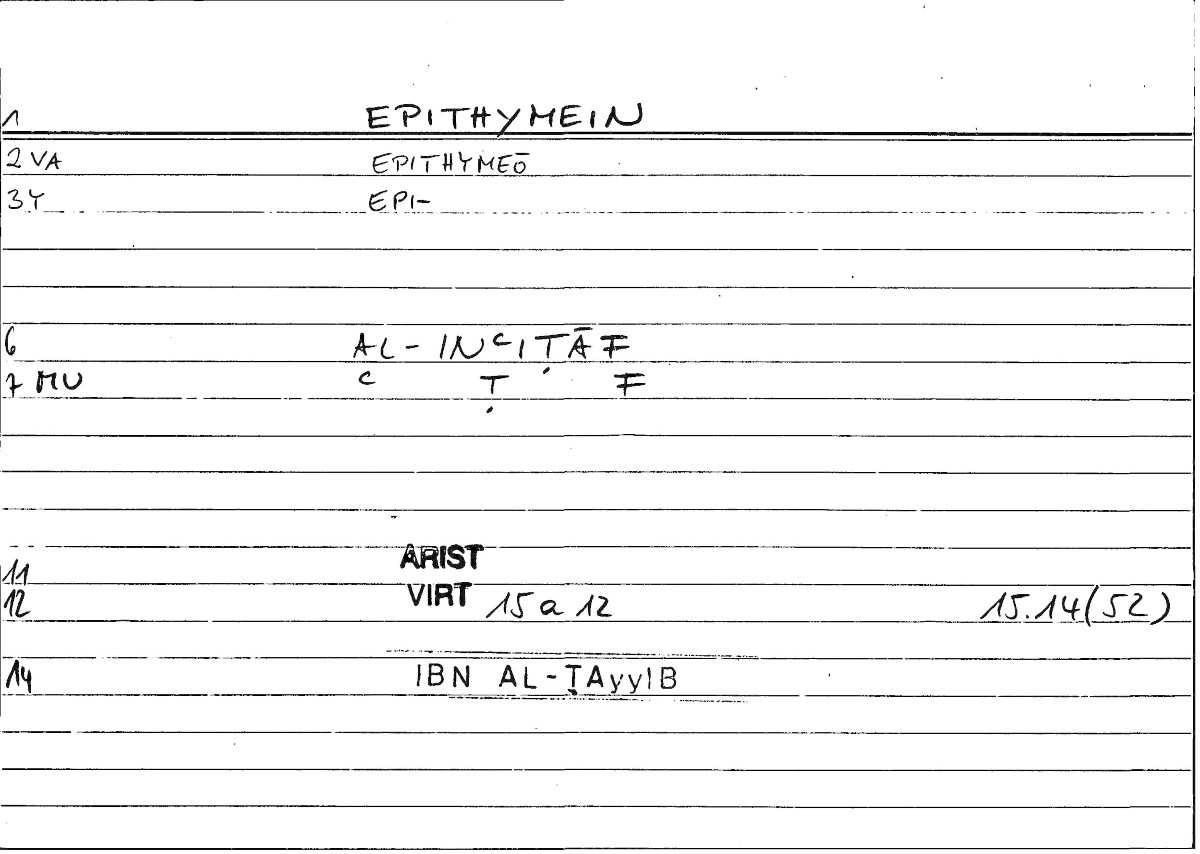 1 EPITHYMEIN
2 VA EPITHYMEŌ
3Y EPI-
6 AL-INᶜIṬĀF
7 MU ᶜ Ṭ F
11 ARIST
12 VIRT 15 a 12 15.14(52)
14 IBN AL-ṬAyyIB